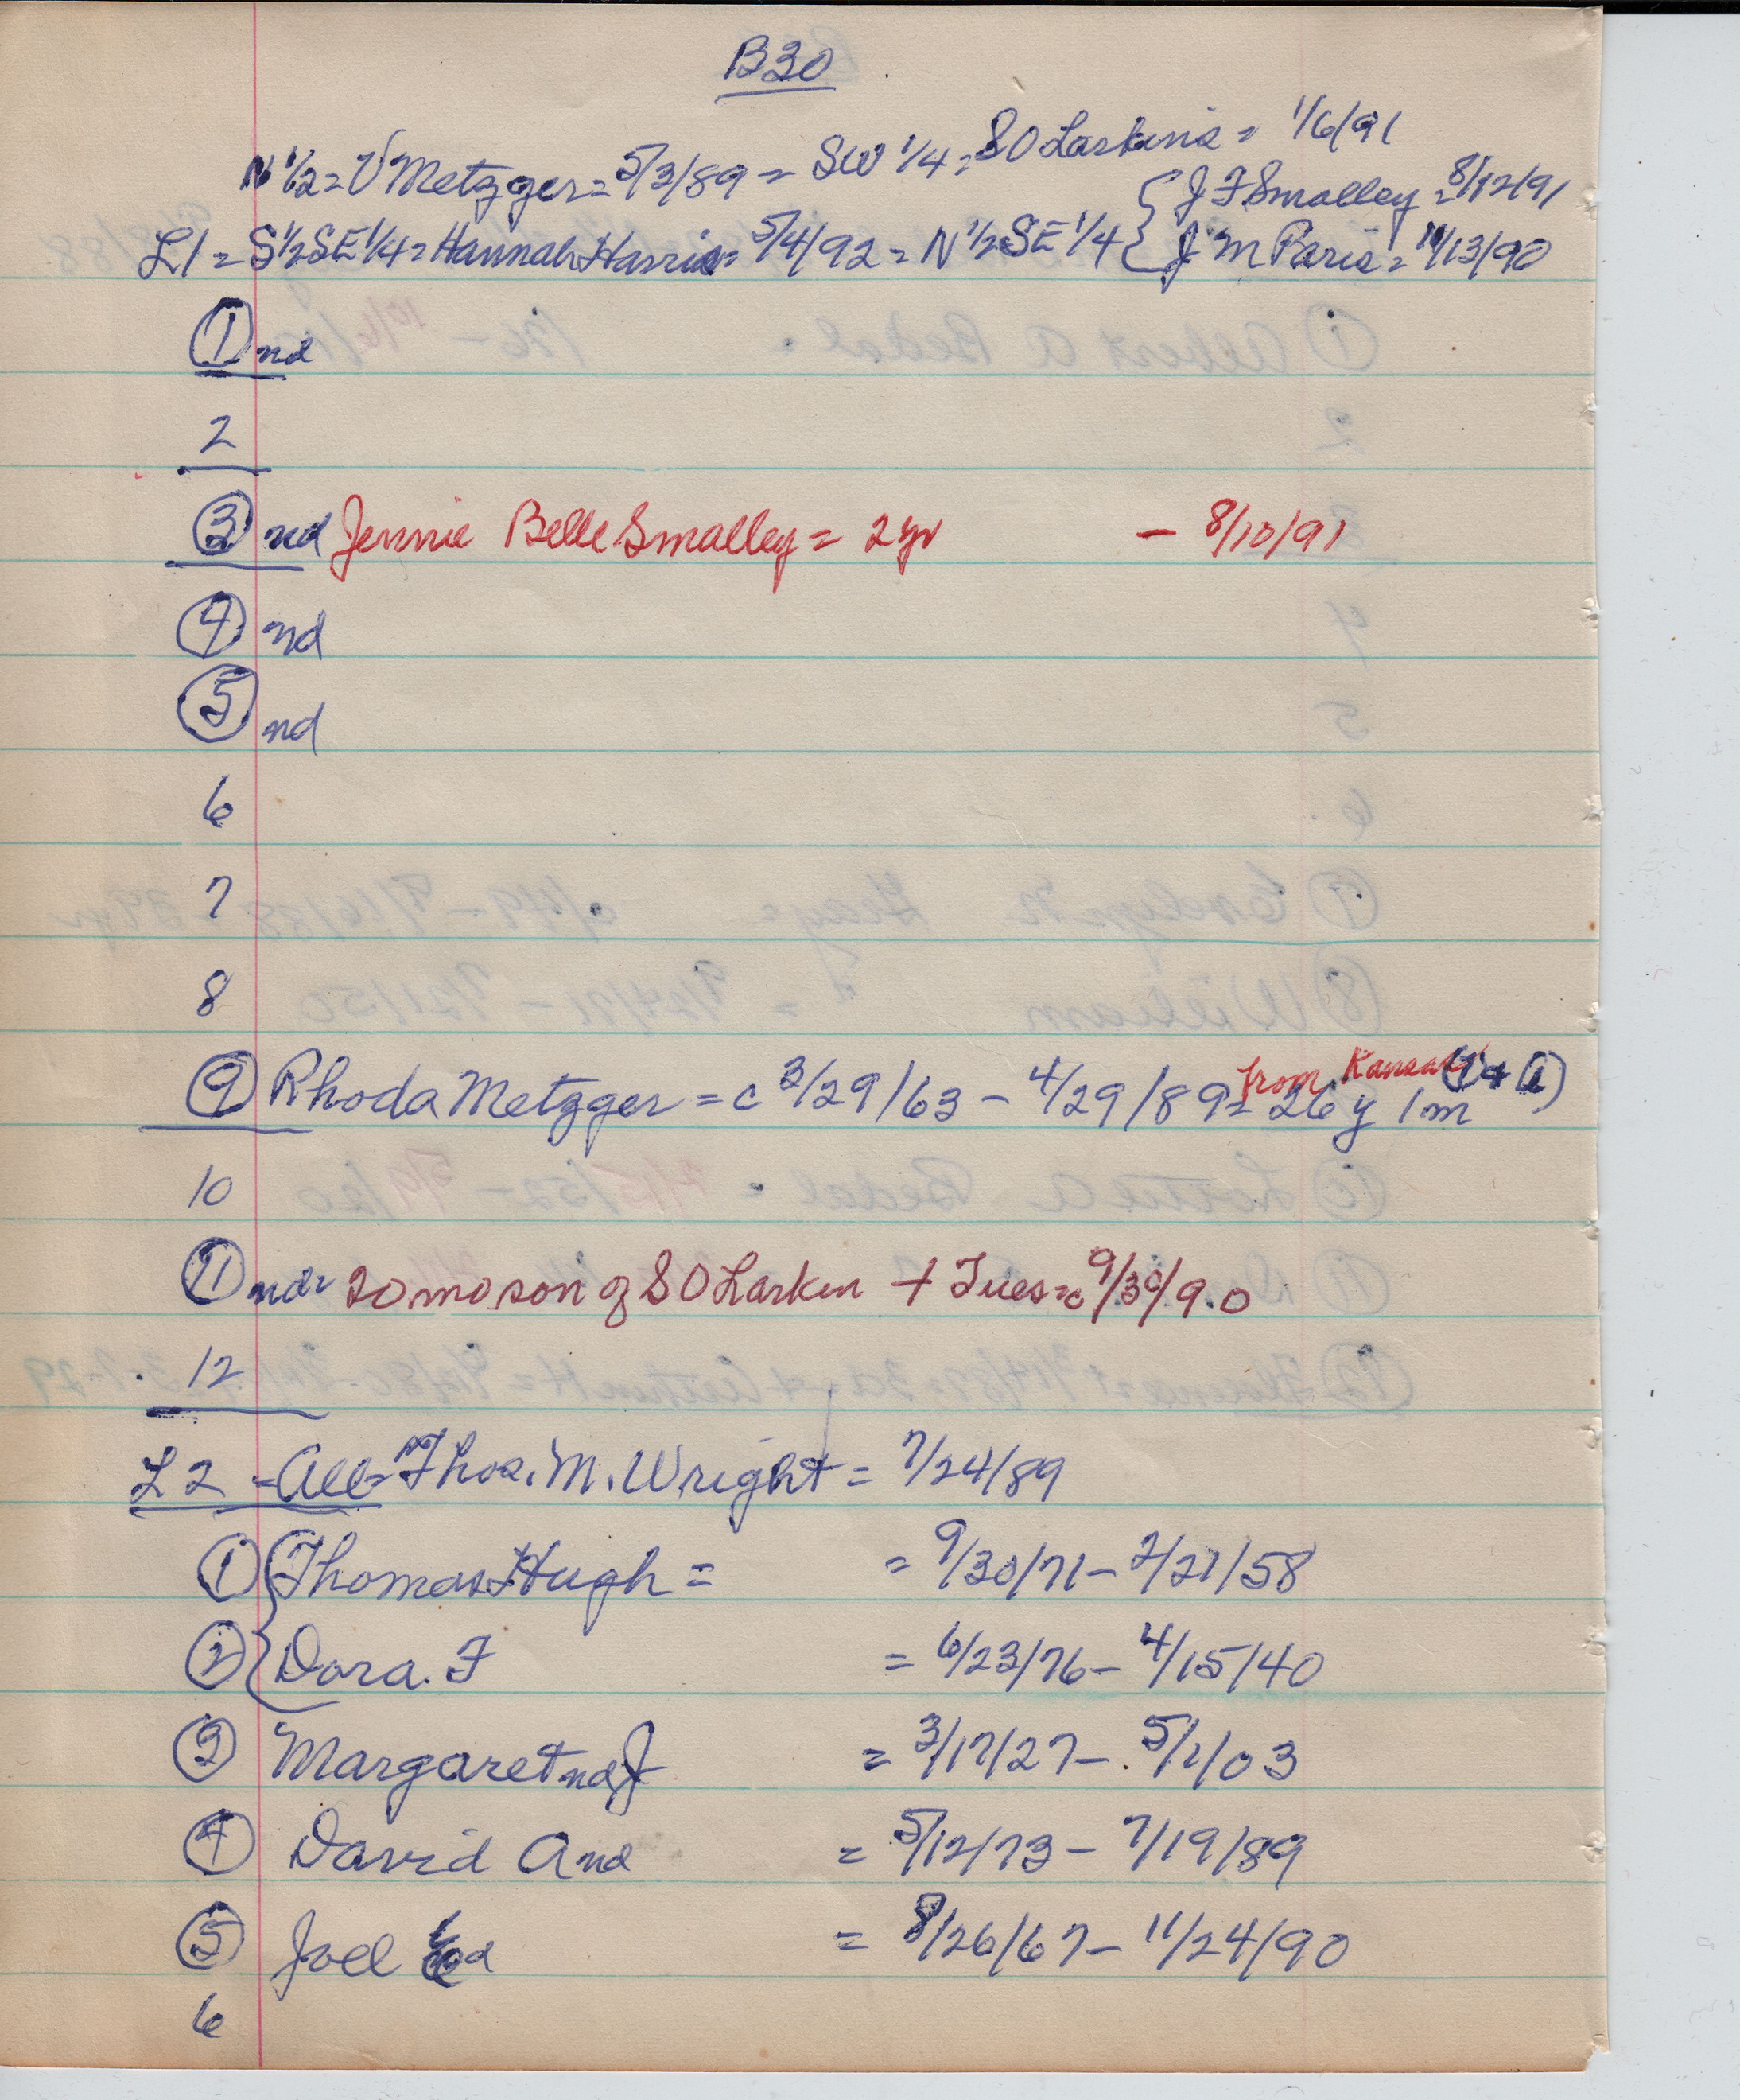 B30
N 1/2 = V Metzger = 5/3/89 = SW 1/4 = S O Laskins = 1/6/91
{ J F Smalley = 8/12/91
L1 = S 1/2 SE 1/4 = Hannah Harris = 5/4/92 = N 1/2 SE 1/4 { J M Paris = 11/13/90
1 nd
2
3 nd Jennie Belle Smalley = 2 yr - 8/10/91
4 nd
5 nd
6
7
8
from Kansas
9 Rhoda Metzger = c 3/29/63 - 4/29/89 = 26 y 1 m
10
11 nd = 20 mo son of S O Larken + Tues = c 9/30/90
12
L2 - All = Thos. M. Wright = 7/24/89
1 { Thomas Hugh = = 9/30/71 - 2/21/58
2 { Dora. F = 6/23/76 - 4/15/40
3 Margaret nd J = 3/17/27 - 5/1/03
4 David A nd = 5/12/73 - 7/19/89
5 Joel = 8/26/67 - 11/24/90
6